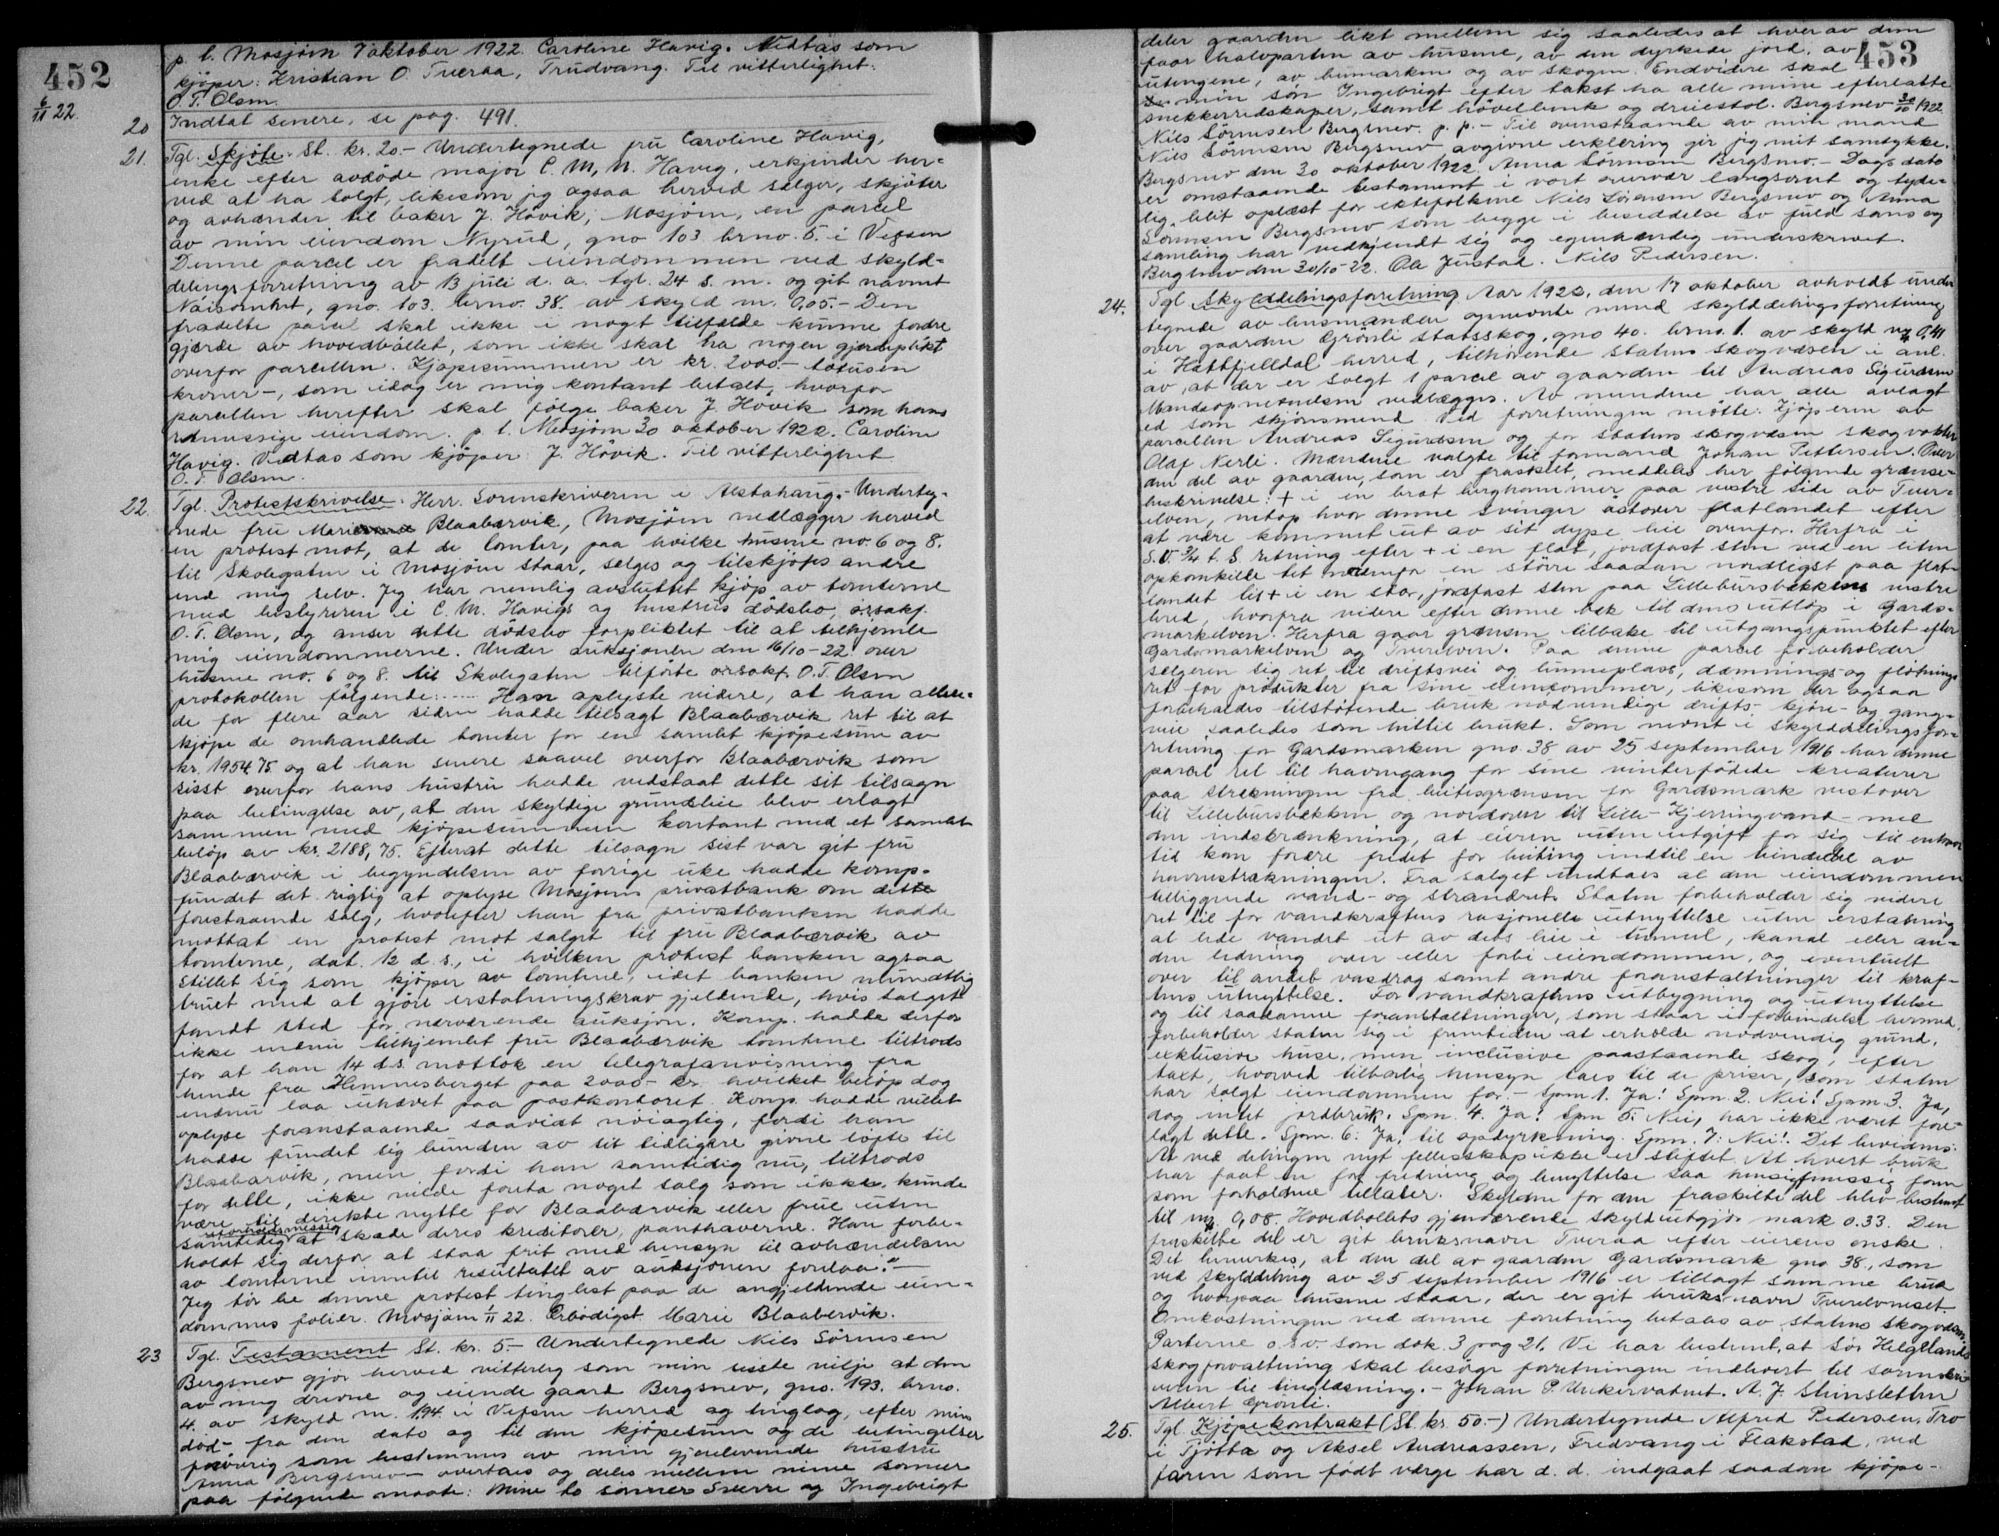 452
6/11 22.
p. t. Mosjøen 7 oktober 1922. Caroline Havig. Vedtas som
kjøper: Kristian O. Tveraa, Trudvang. Til vitterlighet:
O. T. Olsen.
20 Indtat senere, se pag. 491.
21. Tgl. Skjøte. St. kr. 20.- Undertegnede fru Caroline Havig,
enke efter avdøde major C. M. N. Havig, erkjender her-
ved at ha solgt, likesom jeg ogsaa herved sælger, skjøter
og avhænder til baker J. Høvik, Mosjøen, en parcel
av min eiendom Nyrud, gno 103 brno. 5. i Vefsen
Denne parcel er fradelt eiendommen ved skyld-
delingsforretning av 13 juli d. a. tgl. 24 s. m. og git navnet
Nøisomhet, gno. 103. brno. 38. av skyld m. 0,05.- Den
fradelte parcel skal ikke i nogt tilfælde kunne fordre
gjærde av hovedbøllet, som ikke skal ha nogen gjerdeplikt
overfor parcellen. Kjøpesummen er kr. 2000.- totusen
kroner-, som idag er mig kontant betalt, hvorfor
parcellen herefter skal følge baker J. Høvik som hans
retmessige eiendom. p. t. Mosjøen 30 oktober 1922. Caroline
Havig. Vedtas som kjøper: J. Høvik. Til vitterlighet
O. T. Olsen.
22. Tgl. Protestskrivelse. Herr Sorenskriveren i Alstahaug.- Underteg-
nede fru Marie Blaabærvik, Mosjøen nedlægger herved
en protest mot, at de tomter, paa hvilke husene no. 6 og 8.
til Skolegaten i Mosjøen staar, selges og tilskjøtes andre
end mig selv. Jeg har nemlig avsluttet kjøp av tomterne
med bestyreren i C. M. Havigs og hustrus dødsbo, o.r.sakf.
O. T. Olsen, og anser dette dødsbo forpliktet til at tilhjemle
mig eiendommerne. Under auksjonen den 16/10-22 over
husene no. 6 og 8. til Skolegaten tilførte o.r.sakf. O. T. Olsen
protokollen følgende: ---- Han oplyste videre, at han allere-
de for flere aar siden hadde tilsagt Blaabærvik ret til at
kjøpe de omhandlede tomter for en samlet kjøpesum av
kr. 1954.75 og at han senere saavel overfor Blaabærvik som
sisst overfor hans hustru hadde vedstaat dette sit tilsagn
paa betingelse av, at den skyldige grundleie blev erlagt
sammen med kjøpesummen kontant med et samlet
beløp av kr. 2188,75. Efterat dette tilsagn sist var git fru
Blaabærvik i begyndelsen av forrige uke hadde komp.
fundet det rigtig at oplyse Mosjøens privatbank om dette
forestaaende salg, hvorefter han fra privatbanken hadde
mottat en protest mot salget til fru Blaabærvik av
tomterne, dat. 12 d. s., i hvilken protest banken ogsaa
stillet sig som kjøper av tomtene, idet banken mundtlig
truet med at gjøre erstatningskrav gjeldende, hvis salget
fandt sted før nærværende auksjon. Komp. hadde derfor
ikke endnu tilhjemlet fru Blaabærvik tomtene tiltrods
for at han 14 d.s. mottok en telegrafanvisning fra
hende fra Hemnesberget paa 2000.- kr. hvilket beløp dog
endnu laa uhævet paa postkontoret. Komp. hadde villet
oplyse foranstaaende saavidt nøiagtig, fordi han
hadde fundet sig bunden av sit tidligere givne løfte til
Blaabærvik, men fordi han samtidig nu, tiltrods
for dette, ikke vilde foreta noget salg som ikke kunde
være til direkte nytte for Blaabærvik eller frue uten
samtidig at skade deres kreditorer, panthaverne. Han forbe-
holdt sig derfor at staa frit med hensyn til avhændelsen
av tomterne inntil resultatet av auksjonen forelaa."-
Jeg tør be denne protest tinglæst paa de angjeldende eien-
dommes folier. Mosjøen 1/11 22. Ærbødigst Marie Blaabervik.
23 Tgl. Testament St. kr. 5.- Undertegnede Nils Sørensen
Bergsnev gjør herved vitterlig som min siste vilje at den
av mig drevne og eiende gaard Bergsnev, gno. 193. brno.
4. av skyld m. 1.94 i Vefsen herred og tinglag, efter min
død- fra den dato og til den kjøpesum og de betingelser
forøvrig som bestemmes av min gjenlevende hustru
Anna Bergsnev- overtaes og deles mellem mine sønner
paa følgende maate: Mine to sønner Sverre og Ingebrigt
453
deler gaarden likt mellem sig saaledes at hver av dem
faar halvparten av husene, av den dyrkede jord, av
utengene, av bumarken og av skogen. Endvidere skal
min søn Ingebrigt efter takst ha alle mine efterlatte
snekkerredskaper, samt høvelbenk og dreiestol. Bergsnev 30/10 1922
Nils Sørensen Bergsnev. p. p. - Til ovenstaaende av min mand
Nils Sørensen Bergsnev avgivne erklæring gir jeg mit samtykke.
Bergsnev den 30 oktober 1922 Anna Sørensen Bergsnev.- Dags dato
er omstaaende testament i vort overvær langsomt og tyde-
lig blit oplæst for ektefolkene Nils Sørensen Bergsnev og Anna
Sørensen Bergsnev som begge i besiddelse av fuld sans og
samling har vedkjendt sig og egenhændig underskrevet.
Bergsnev den 30/10-22. Ole Justad. Nils Pedersen.
24. Tgl. Skylddelingsforretning Aar 1922, den 17 oktober avholdt under
tegnede av lensmanden opnevnte mend skylddelingsforretning
over gaarden Grönli statsskog, gno 40. brno. 1. av skyld m 0,41
i Hattfjelldal herred, tilhørende statens skogvæsen i anl.
av, at der er solgt 1 parcel av gaarden til Andreas Sigurdsen
Mandsopnevnelsen vedlægges. Av mændene har alle avlagt
ed som skjønsmend. Ved forretningen møtte: Kjøperen av
parcellen Andreas Sigurdsen og for statens skogvæsen skogvokter
Olaf Nerli. Mændene valgte til formand Johan Pettersen. Over
den del av gaarden, som er fraskilt, meddeles her følgende grænse-
beskrivelse: + i en brat berghammer paa vestre side av Tver-
elven, netop hvor denne svinger østover flatlandet efter
at være kommet ut av sit dype leie ovenfor. Herfra i
S.V. 3/4 t. S. retning efter + i en flat, jordfast sten ved en liten
opkomkilde tet nedenfor en større saadan nordligst paa flat-
landet til + i en stor, jordfast sten paa Lillebursbekkens vestre
bred, hvorfra videre efter denne bek til dens utløp i Gards-
markelven. Herfra gaar grænsen tilbake til utgangspunktet efter
Gardsmarkelven og Tverelven. Paa denne parcel forbeholder
selgeren sig ret til driftsvei og lunneplass, dæmnings- og fløtnings
ret for produkter fra sine eiendommer, likesom der ogsaa
forbeholdes tilstøtende bruk nødvendige drifts- kjøre- og gang-
veie saaledes som hittil brukt. Som nevnt i skylddelingsfor-
retning for Gardsmarken gno. 38 av 25 september 1916 har denne
parcel ret til havnegang for sine vinterfødde kreaturer
paa strekningen fra beitesgrænsen for Gardsmark vestover
til Lillebursbekken og nordover til Lille-Kjerringvand- med
den indskrænkning, at eieren uten utgift for sig til enhver
tid kan forære fredet for beiting indtil en tiendedel av
havnestrækningen. Fra salget undtaes al den eiendommen
tilliggende vand- og strandret. Staten forbeholder sig videre
ret til for vandkraftens rasjonelle utnyttelse uten erstatning
at lede vandet ut av dets leie i tunnel, kanal eller an-
den ledning over eller forbi eiendommen, og eventuelt
over til andet vasdrag samt andre foranstaltninger til kraf-
tens utnyttelse. For vandkraftens utbygning og utnyttelse
og til saadanne foranstaltninger, som staar i forbindelse hermed,
forbeholder staten sig i fremtiden at erholde nødvendig grund,
exklusive huse, men inclusive paastaaende skog, efter
takst, hvorved tilbørlig hensyn taes til de priser, som staten
har solgt eiendommen for.- Spm 1. Ja! Spm. 2. Nei! Spm 3. Ja,
dog intet jordbruk. Spm. 4. Ja! Spm 5. Nei, har ikke været fore-
lagt dette. Spm. 6: Ja, til opdyrkning. Spm. 7: Nei!. Det bevidnes:
At ved delingen nyt fellesskap ikke er stiftet. At hvert bruk
har faat en for fredning og benyttelse saa hensigtsmessig form
som forholdene tillater. Skylden for den fraskilte del blev bestemt
til m. 0,08. Hovedbøllets gjenværende skyld utgjør mark 0.33. Den
fraskilte del er git bruksnavn Tveraa efter eierens ønske.
Det bemerkes, at den del av gaarden Gardsmark gno 38, som
ved skylddeling av 25 september 1916 er tillagt samme bruk
og hvorpaa husene staar, der er git bruksnavn Tverelvneset.
Omkostningen ved denne forretning betales av statens skogvæsen.
Parterne o.s.v. som dok. 3 pag 21. Vi har bestemt, at Sør Helgelands
skogforvaltning skal besørge forretningen indlevert til sorenskri
veren til tinglæsning.- Johan P. Unkervatnet. A. J. Stensletten
Albert Grönli.
25. Tgl. Kjøpekontrakt (St. kr. 50.-) Undertegnede Alfred Pedersen, Tro
i Tjøtta og Aksel Andreassen, Fredvang i Flakstad, ved
faren som født værge har d. d. indgaat saadan kjøpe-